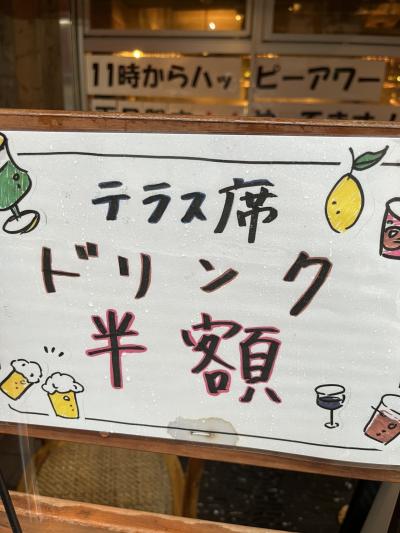 11時からハッピーアワー
テラス席
ドリンク
半額